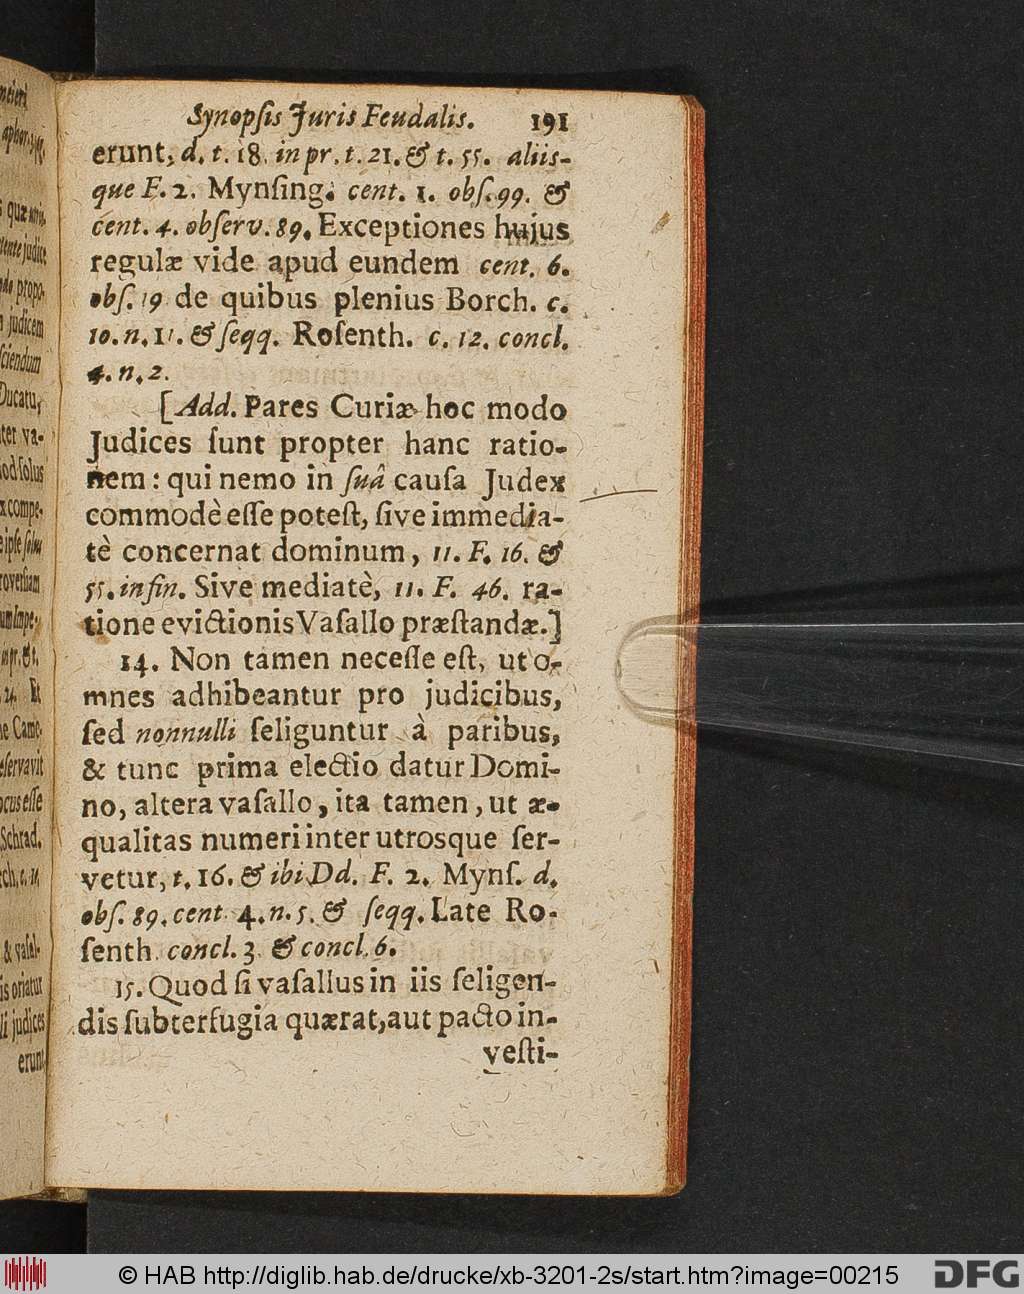 Synopſis Juris Feudalis. 191
erunt, d. t. 18. in pr. t. 21. & t. 55. aliis-
que F. 2. Mynſing. cent. 1. obſ. 99. &
cent. 4. obſerv. 89. Exceptiones hujus
regulæ vide apud eundem cent. 6.
obſ. 19 de quibus plenius Borch. c.
10. n. 11. & ſeqq. Roſenth. c. 12. concl.
4. n. 2.
[Add. Pares Curiæ hoc modo
Judices ſunt propter hanc ratio-
nem: qui nemo in ſuâ cauſa Judex
commodè eſſe poteſt, ſive immedia-
tè concernat dominum, 11. F. 16. &
55. in fin. Sive mediatè, 11. F. 46. ra-
tione evictionis Vaſallo præſtandæ.]
14. Non tamen neceſſe eſt, ut o-
mnes adhibeantur pro judicibus,
ſed nonnulli ſeliguntur à paribus,
& tunc prima electio datur Domi-
no, altera vaſallo, ita tamen, ut æ-
qualitas numeri inter utrosque ſer-
vetur, t. 16. & ibi Dd. F. 2. Mynſ. d.
obſ. 89. cent. 4. n. 5. & ſeqq. Late Ro-
ſenth. concl. 3. & concl. 6.
15. Quod ſi vaſallus in iis ſeligen-
dis ſubterfugia quærat, aut pacto in-
veſti-
judicem
Ducatu,
ter va-
x compe-
Schrad.
& vaſal-
is oriatur
li judices
erunt
© HAB http://diglib.hab.de/drucke/xb-3201-2s/start.htm?image=00215
DFG